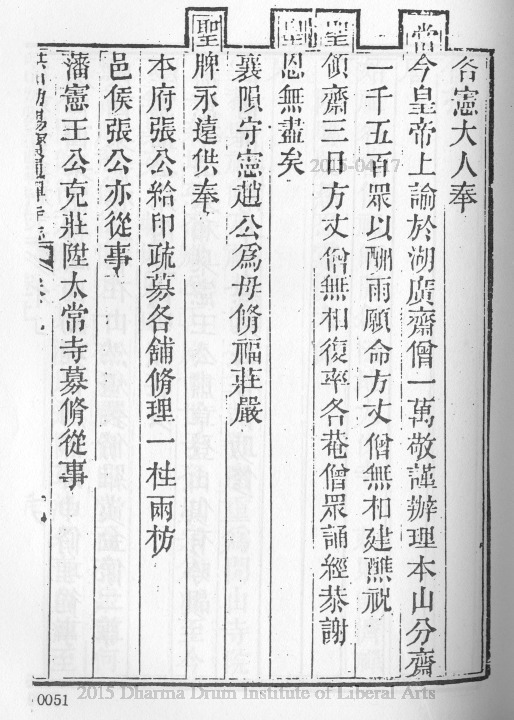 各憲大人奉
當今皇帝上諭於湖廣齋僧一萬敬謹辦理本山分齋
一千五百眾以酬雨願命方丈僧無相建醮祝
聖領齋三日方丈僧無相復率各菴僧眾誦經恭謝
聖恩無盡矣
襄隕守憲趙公為母脩福莊嚴
聖牌永遠供奉
本府張公給印疏募各舖脩理一柱兩枋
邑侯張公亦從事
藩憲王公克莊陞太常寺募脩從事
2015-04-17
0051
2015 Dharma Drum Institute of Liberal Arts